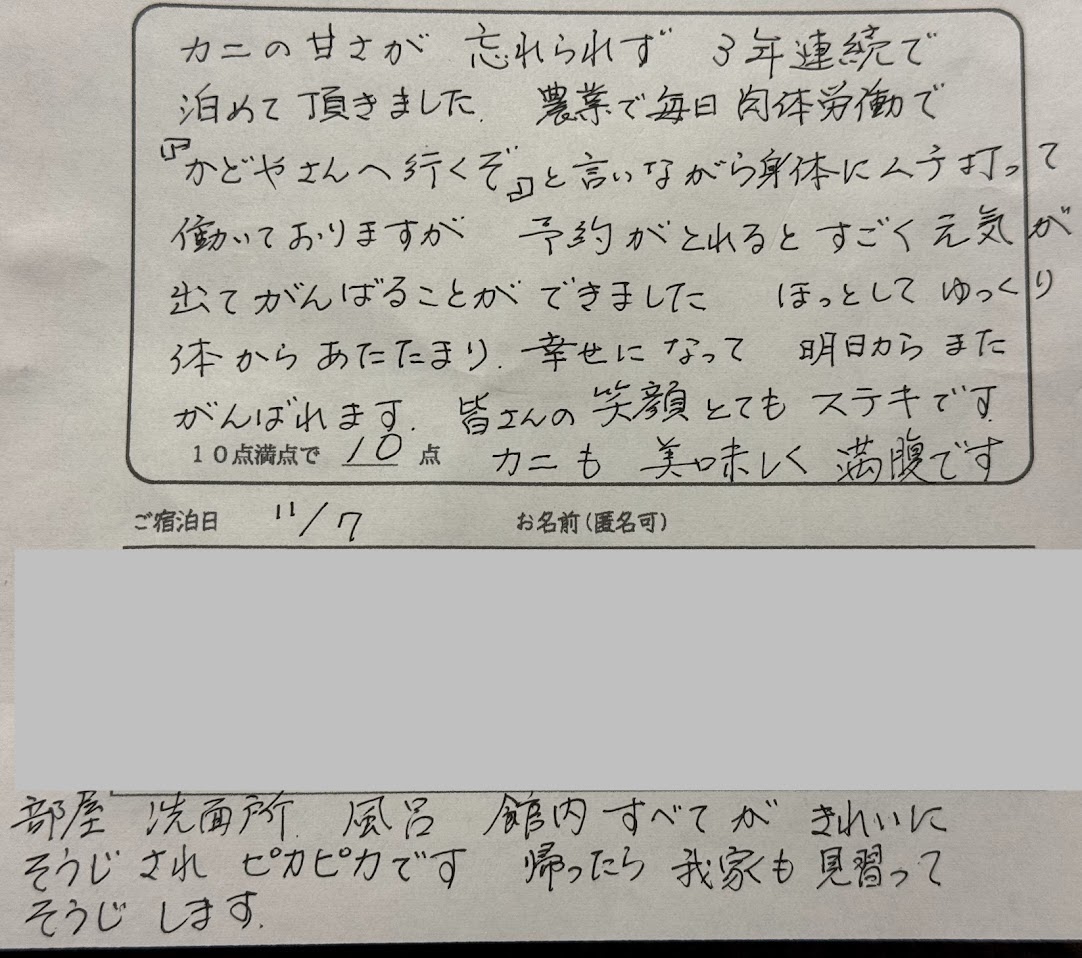 カニの甘さが 忘れられず 3年連続で
泊めて頂きました. 農業で毎日肉体労働で
『かどやさんへ行くぞ』と言いながら身体にムチ打って
働いておりますが 予約がとれるとすごく元気が
出てがんばることができました ほっとしてゆっくり
体からあたたまり. 幸せになって 明日からまた
がんばれます. 皆さんの笑顔とてもステキです.
10点満点で 10 点 カニも 美味しく 満腹です
ご宿泊日 11/7 お名前(匿名可)
部屋 洗面所. 風呂 館内すべてが きれいに
そうじされ ピカピカです 帰ったら 我家も見習って
そうじします.